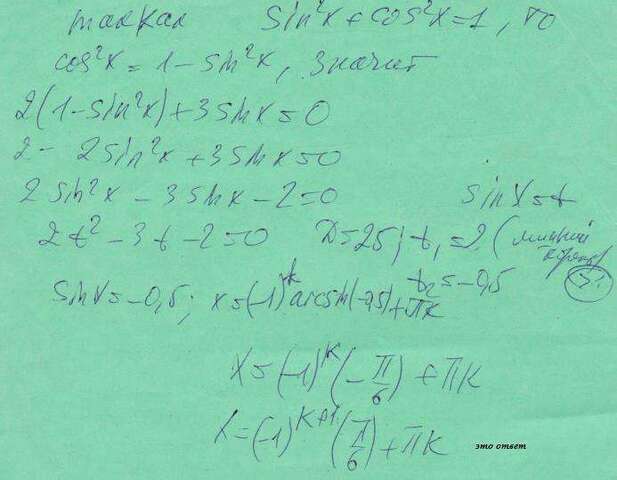 так как sin²x + cos²x = 1, то
cos²x = 1 - sin²x, значит
2(1 - sin²x) + 3 sin x = 0
2 - 2sin²x + 3 sin x = 0
2 sin²x - 3 sin x - 2 = 0 sin x = t
2t² - 3t - 2 = 0 D = 25; t₁ = 2 (лишний корень)
t₂ = -0,5
sin x = -0,5; x = (-1)ᵏ arcsin(-0,5) + πk
x = (-1)ᵏ (-π/6) + πk
x = (-1)ᵏ⁺¹ (π/6) + πk это ответ